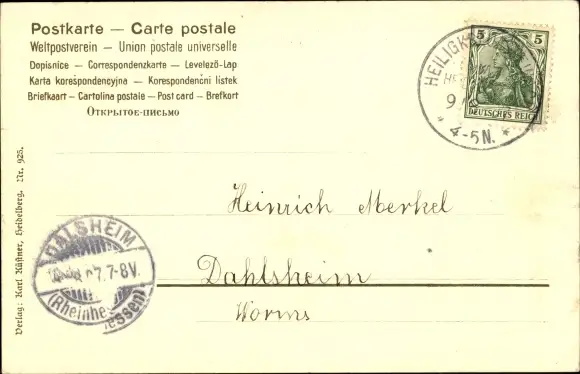 Postkarte — Carte postale
Weltpostverein — Union postale universelle
Dopisnice — Correspondenzkarte — Levelező-Lap
Karta korespondencyjna — Korespondenční listek
Briefkaart — Cartolina postale — Post card — Brefkort
Открытое-письмо
5 5
DEUTSCHES REICH
HEILIGK
9
4-5N.
Heinrich Merkel
Dahlsheim
Worms
DALSHEIM
7.7-8V.
(Rheinhessen)
Verlag: Karl Kästner, Heidelberg. Nr. 925.